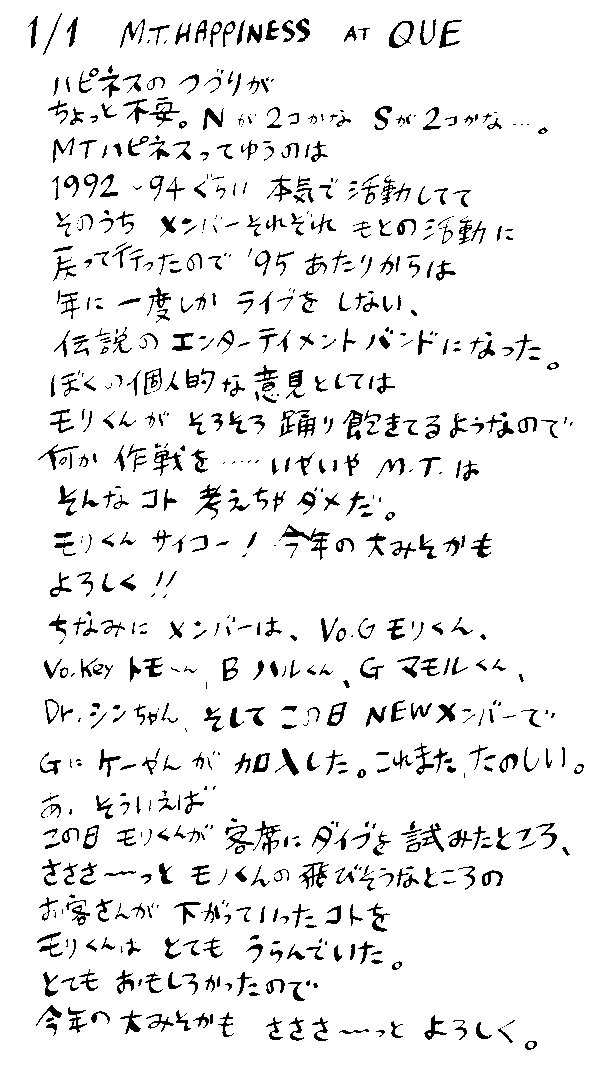 1/1 M.T.HAPPINESS AT QUE
ハピネスの つづりが
ちょっと不安。Nが2コかな Sが2コかな…。
MTハピネスってゆうのは
1992~94ぐらい 本気で活動してて
そのうち メンバーそれぞれ もとの活動に
戻って行ったので '95あたりからは
年に一度しか ライブを しない、
伝説の エンターテイメントバンドになった。
ぼくの個人的な意見としては
モリくんが そろそろ踊り飽きてるようなので
何か 作戦を……いやいや M.T.は
そんな コト 考えちゃダメだ。
モリくん サイコー! 今年の大みそかも
よろしく!!
ちなみに メンバーは、Vo.G モリくん、
Vo.Key トモくん、B ハルくん、G マモルくん、
Dr.シンちゃん、そして この日 NEWメンバーで
Gに ケーやんが 加入した。これまた、たのしい。
あ、そういえば
この日 モリくんが 客席に ダイブを 試みたところ、
さささ〜〜っと モリくんの 飛びそうなところの
お客さんが 下がっていったコトを
モリくんは とても うらんでいた。
とても おもしろかったので
今年の大みそかも さささ〜〜っと よろしく。